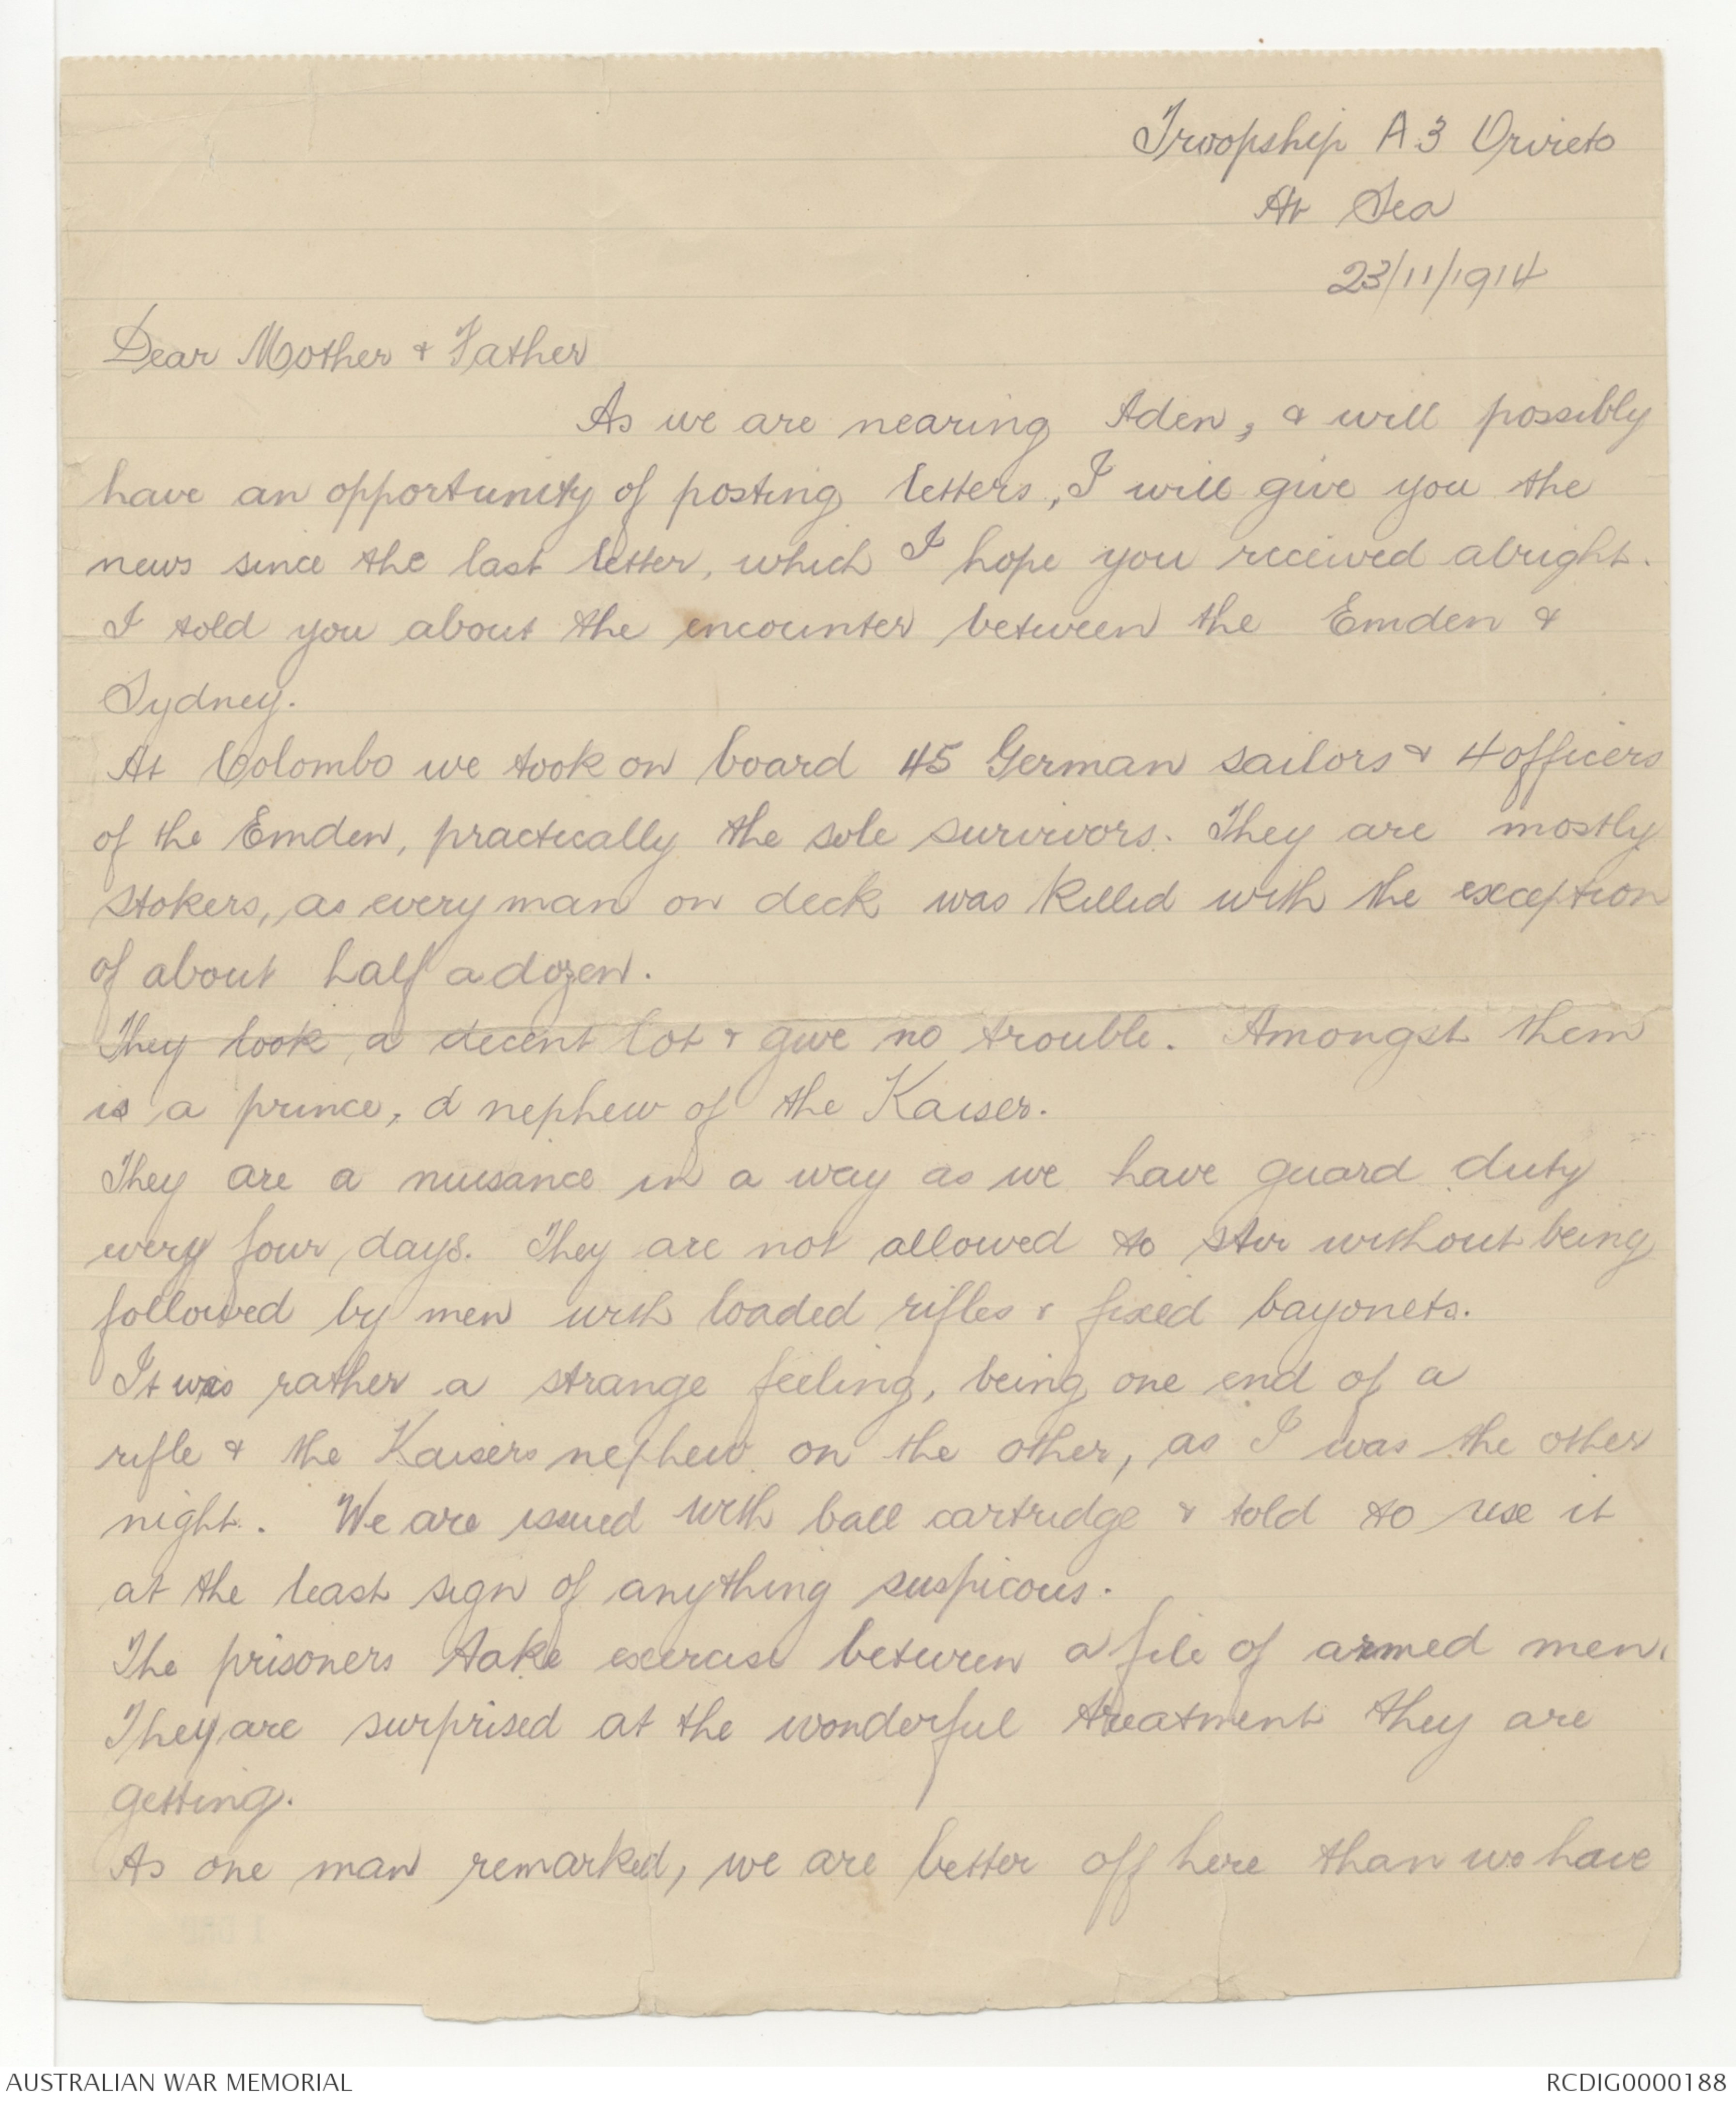 Troopship A3 Orvieto
At Sea
23/11/1914
Dear Mother & Father
As we are nearing Aden, & will possibly
have an opportunity of posting letters, I will give you the
news since the last letter, which I hope you received alright.
I told you about the encounter between the Emden &
Sydney.
At Colombo we took on board 45 German sailors & 4 officers
of the Emden, practically the sole survivors. They are mostly
stokers, as every man on deck was killed with the exception
of about half a dozen.
They look a decent lot & give no trouble. Amongst them
is a prince, a nephew of the Kaiser.
They are a nuisance in a way as we have guard duty
every four days. They are not allowed to stir without being
followed by men with loaded rifles & fixed bayonets.
It was rather a strange feeling, being one end of a
rifle & the Kaisers nephew on the other, as I was the other
night. We are issued with ball cartridge & told to use it
at the least sign of anything suspicous.
The prisoners take exercise between a file of armed men.
They are surprised at the wonderful treatment they are
getting.
As one man remarked, we are better off here than we have
AUSTRALIAN WAR MEMORIAL
RCDIG0000188